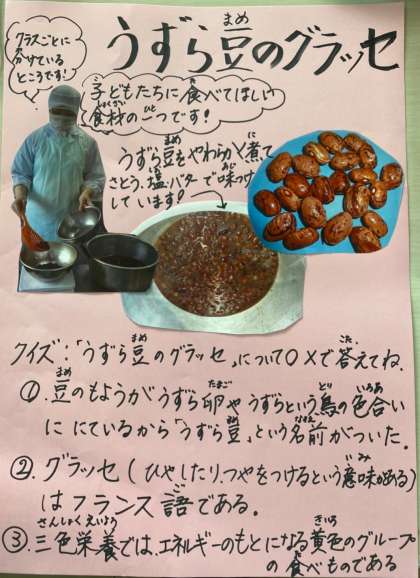 うずら豆のグラッセ
まめ
クラスごとに
分けている
ところです!
子どもたちに食べてほしい
食材の一つです!
うずら豆をやわらかく煮て、
さとう、塩、バターで味つけ
しています!
クイズ:「うずら豆のグラッセ」について○×で答えてね.
①.豆のもようがうずら卵やうずらという鳥の色合い
ににているから「うずら豆」という名前がついた.
②.グラッセ(ひやしたり、つやをつけるという意味がある)
はフランス語である。
③.三色栄養では、エネルギーのもとになる黄色のグループ
の食べものである